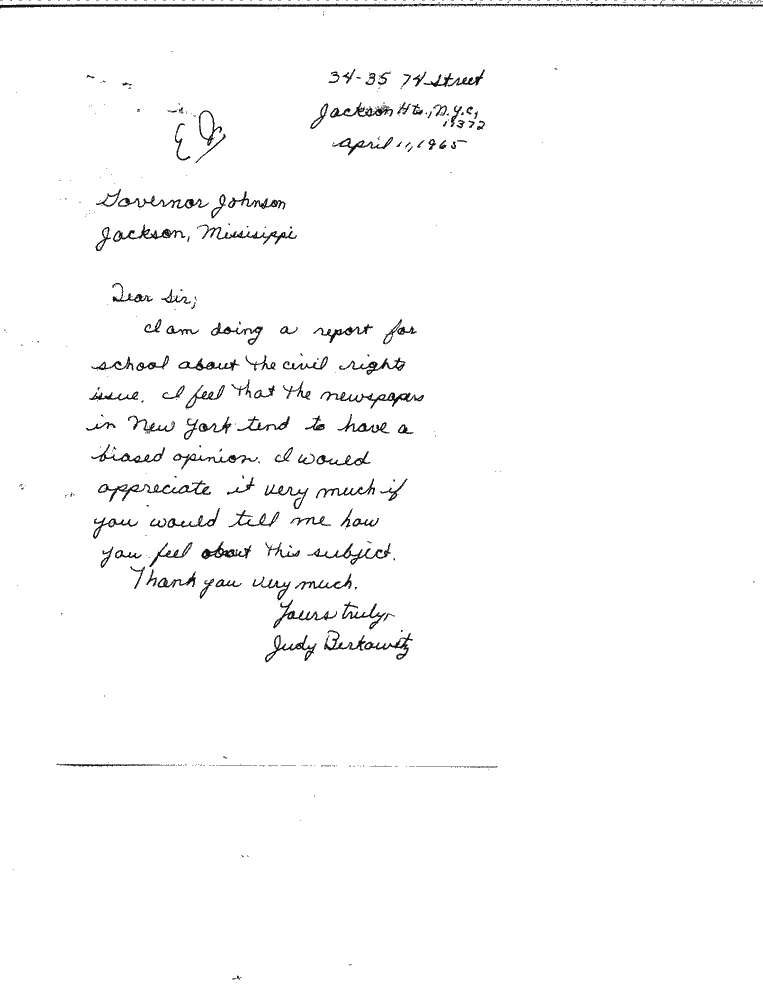 34-35 74 Street
Jackson Hts., N.Y.C.,
11372
April 11, 1965
Governor Johnson
Jackson, Missisippi
Dear Sir;
I am doing a report for
school about the civil rights
issue. I feel that the newspapers
in New York tend to have a
biased opinion. I would
appreciate it very much if
you would tell me how
you feel about this subject.
Thank you very much.
Yours truly,
Judy Berkowitz